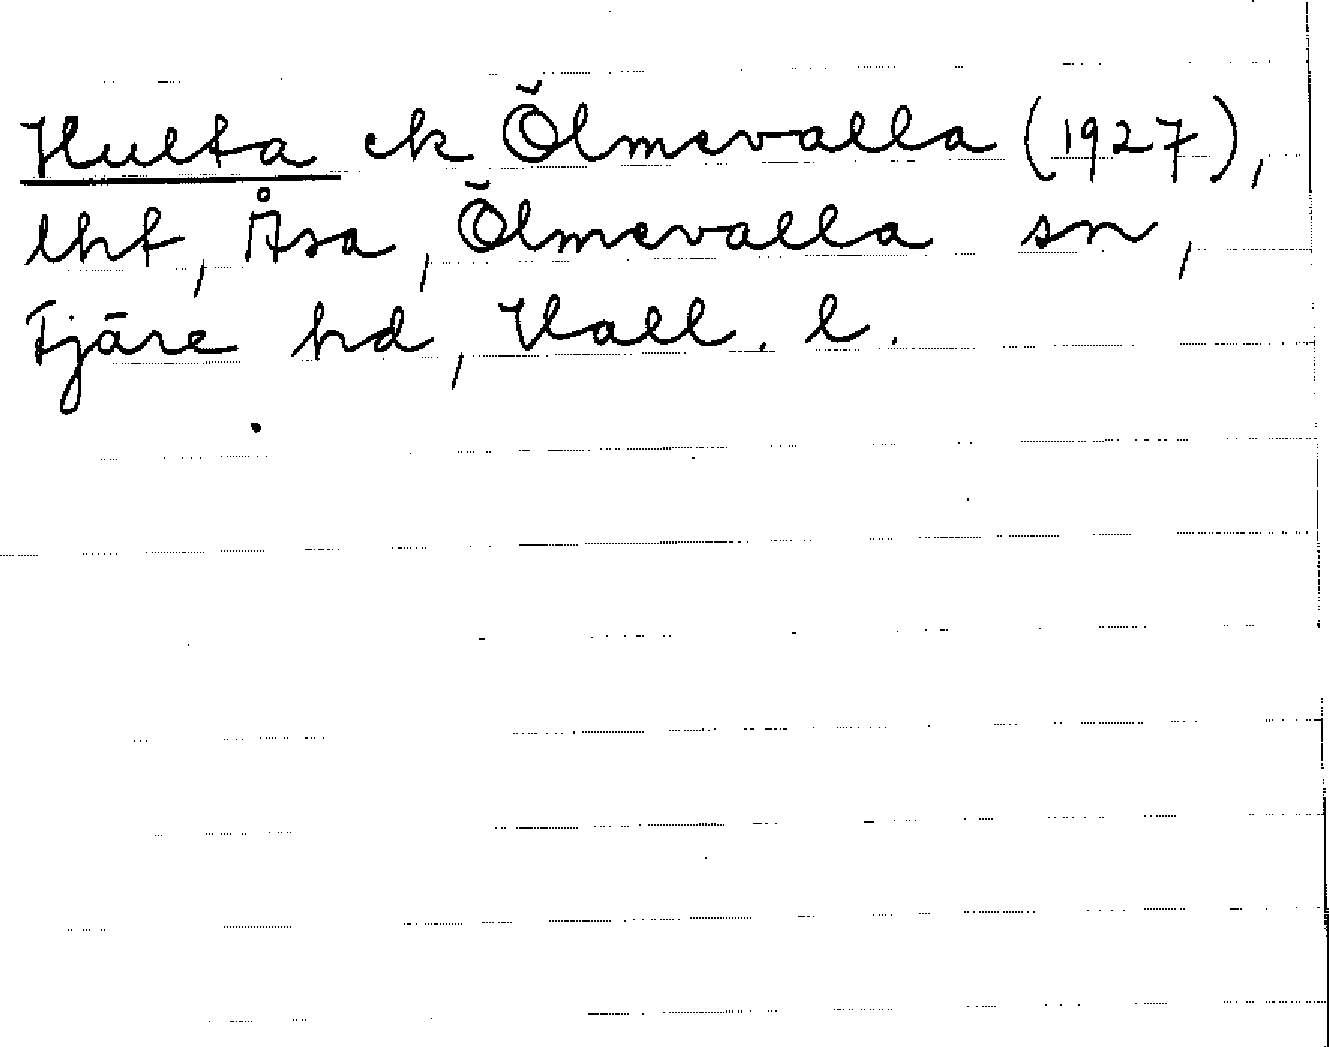 Hulta ek Ölmevalla (1927),
lht, Åsa, Ölmevalla sn,
Fjäre hd, Hall. l.